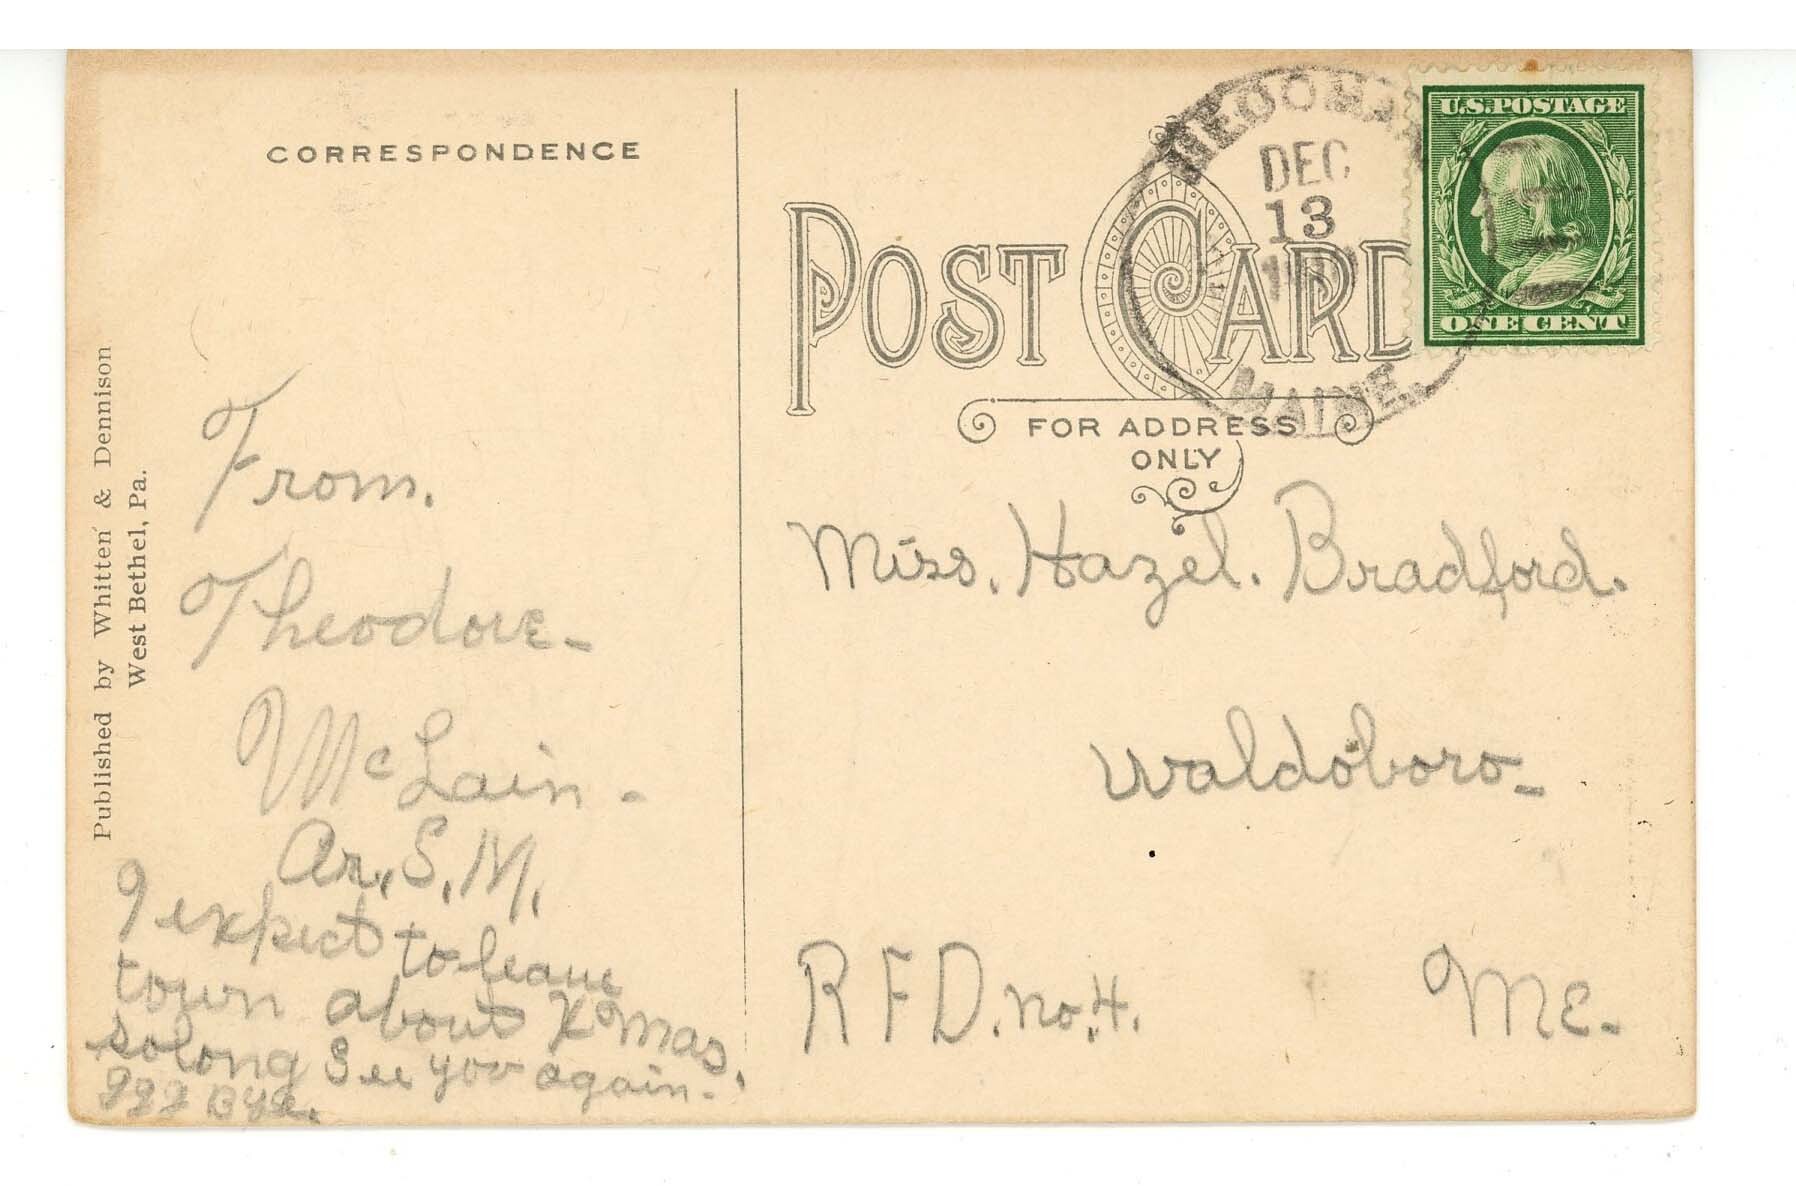 CORRESPONDENCE
Published by Whitten & Dennison
West Bethel, Pa.
From.
Theodore-
McLain-
Ar. S. M.
I expect to leave
town about Xmas.
solong See you again.
Bye.
POST CARD
FOR ADDRESS
ONLY
DEC
13
MAINE.
U.S. POSTAGE
ONE CENT
Miss. Hazel. Bradford.
Waldoboro-
R F D. no. 4. Me.